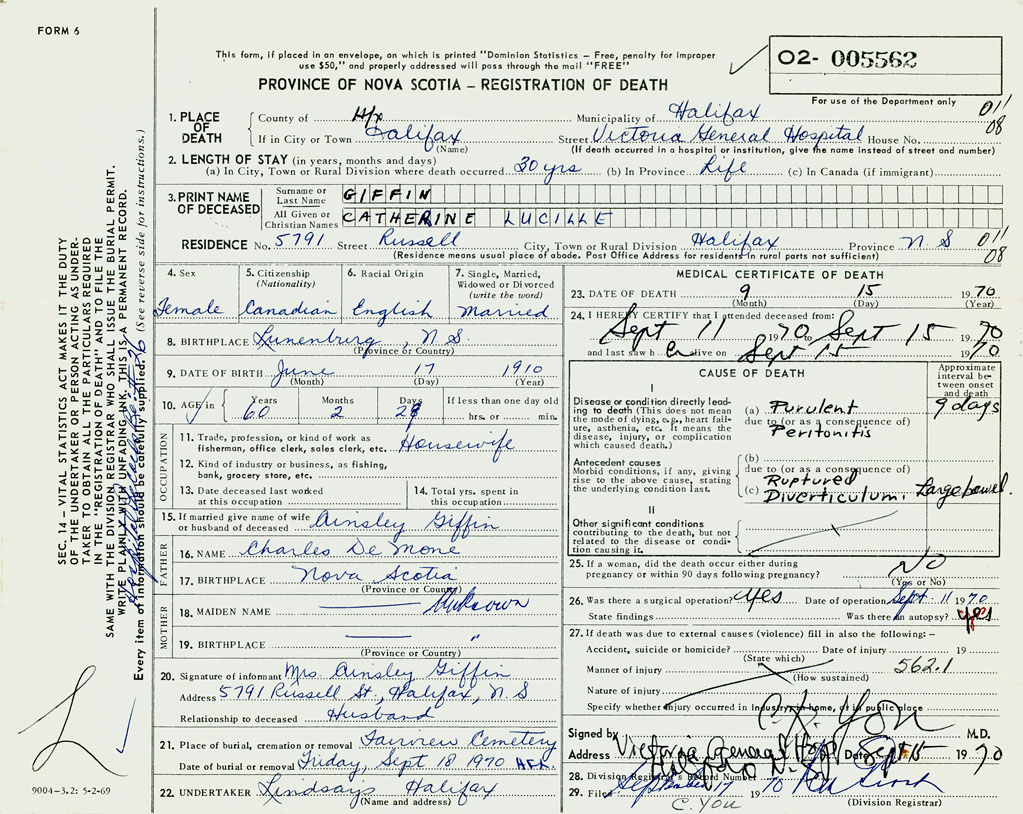 FORM 6
This form, if placed in an envelope, on which is printed "Dominion Statistics – Free, penalty for improper
use $50," and properly addressed will pass through the mail "FREE"
O2- 005562
PROVINCE OF NOVA SCOTIA – REGISTRATION OF DEATH
For use of the Department only
1. PLACE OF DEATH County of Hfx Municipality of Halifax 011
If in City or Town Halifax Street Victoria General Hospital House No. 08
(Name) (If death occurred in a hospital or institution, give the name instead of street and number)
2. LENGTH OF STAY (in years, months and days)
(a) In City, Town or Rural Division where death occurred 30 yrs (b) In Province Life (c) In Canada (if immigrant)
3. PRINT NAME OF DECEASED Surname or Last Name GIFFIN
All Given or Christian Names CATHERINE LUCILLE
RESIDENCE No. 5791 Street Russell City, Town or Rural Division Halifax Province N.S 011
(Residence means usual place of abode. Post Office Address for residents in rural parts not sufficient) 08
4. Sex 5. Citizenship (Nationality) 6. Racial Origin 7. Single, Married, Widowed or Divorced (write the word)
Female Canadian English Married
8. BIRTHPLACE Lunenburg, N.S.
(Province or Country)
9. DATE OF BIRTH June 17 1910
(Month) (Day) (Year)
10. AGE in Years Months Days If less than one day old
60 2 29 hrs. or min.
OCCUPATION
11. Trade, profession, or kind of work as
fisherman, office clerk, sales clerk, etc. Housewife
12. Kind of industry or business, as fishing,
bank, grocery store, etc.
13. Date deceased last worked at this occupation
14. Total yrs. spent in this occupation
15. If married give name of wife
or husband of deceased Ainsley Giffin
FATHER
16. NAME Charles De Mone
17. BIRTHPLACE Nova Scotia
(Province or Country)
MOTHER
18. MAIDEN NAME Unknown
19. BIRTHPLACE "
(Province or Country)
20. Signature of informant Mrs. Ainsley Giffin
Address 5791 Russell St, Halifax, N.S
Relationship to deceased Husband
21. Place of burial, cremation or removal Fairview Cemetery
Date of burial or removal Friday, Sept 18 1970
22. UNDERTAKER Lindsays Halifax
(Name and address)
MEDICAL CERTIFICATE OF DEATH
23. DATE OF DEATH 9 15 1970
(Month) (Day) (Year)
24. I HEREBY CERTIFY that I attended deceased from:
Sept 11 1970 to Sept 15 1970
and last saw her alive on Sept 15 1970
CAUSE OF DEATH
Approximate interval between onset and death
I
Disease or condition directly leading
to death (This does not mean
the mode of dying, e.g., heart failure,
asthenia, etc. It means the
disease, injury, or complication
which caused death.)
(a) Purulent 9 days
due to (or as a consequence of)
Peritonitis
Antecedent causes
Morbid conditions, if any, giving
rise to the above cause, stating
the underlying condition last.
(b)
due to (or as a consequence of)
Ruptured
(c) Diverticulum, Large bowel.
II
Other significant conditions
contributing to the death, but not
related to the disease or condition
causing it.
25. If a woman, did the death occur either during
pregnancy or within 90 days following pregnancy? NO
(Yes or No)
26. Was there a surgical operation? Yes Date of operation Sept. 11 1970
State findings Was there an autopsy? yes
27. If death was due to external causes (violence) fill in also the following: –
Accident, suicide or homicide? Date of injury 19
(State which)
Manner of injury 562.1
(How sustained)
Nature of injury
Specify whether injury occurred in Industry, in home, or in public place
Signed by C.K. YOU M.D.
Address Victoria General Hosp Date Sept 15 1970
Halifax N.S.
28. Division Registrar's Record Number
29. Filed September 17 1970
C. YOU (Division Registrar)
SEC. 14 – VITAL STATISTICS ACT MAKES IT THE DUTY
OF THE UNDERTAKER OR PERSON ACTING AS UNDERTAKER
TO OBTAIN ALL THE PARTICULARS REQUIRED
IN THE "REGISTRATION OF DEATH" AND TO FILE THE
SAME WITH THE DIVISION REGISTRAR WHO SHALL ISSUE THE BURIAL PERMIT.
WRITE PLAINLY WITH UNFADING INK. THIS IS A PERMANENT RECORD.
Every item of information should be carefully supplied. (See reverse side for instructions.)
9004-3.2: 5-2-69